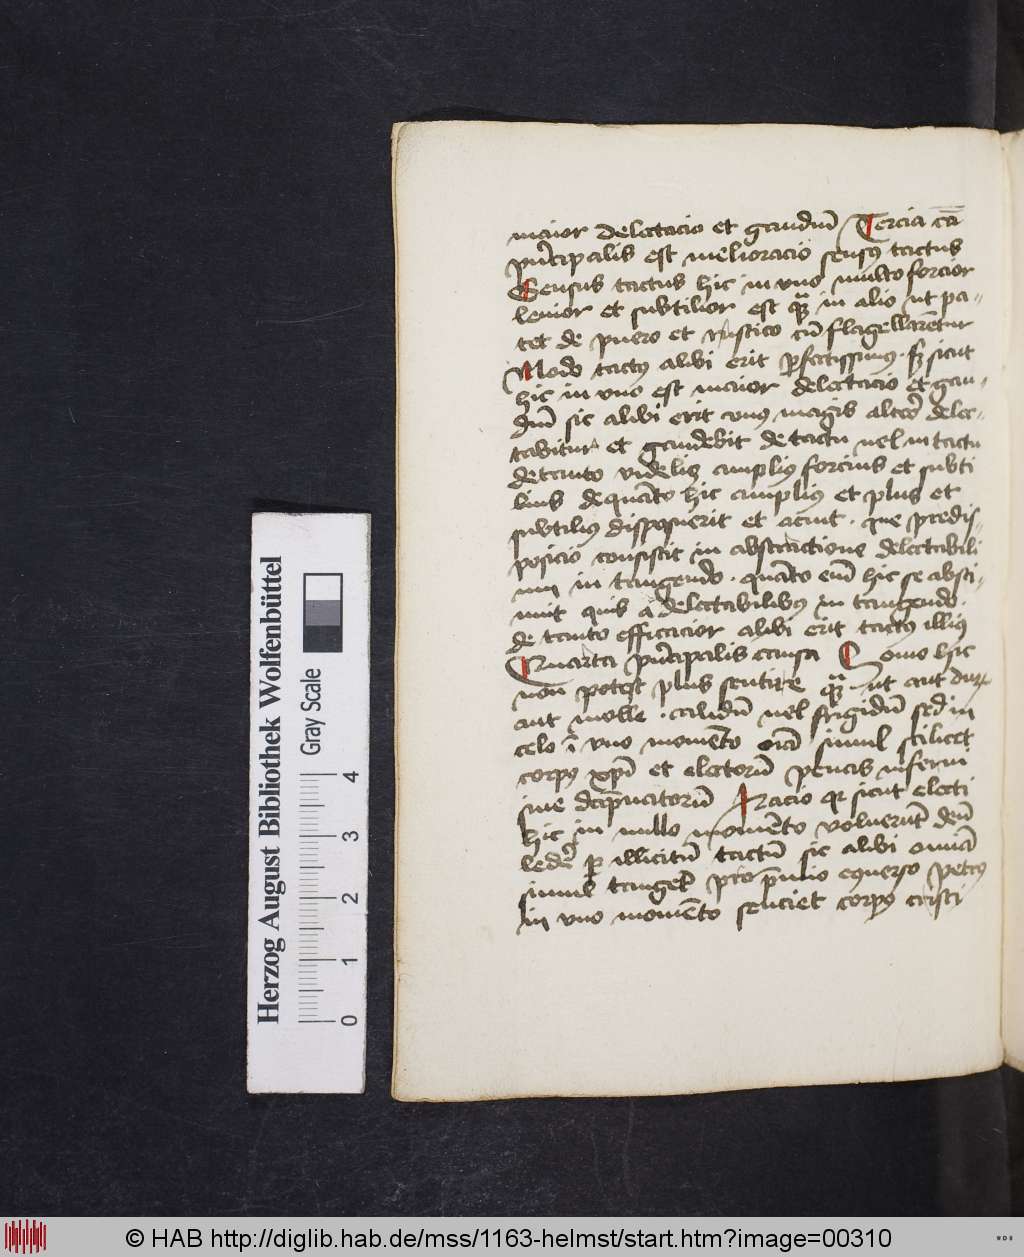 maior delectacio et gaudiū Tercia cā
pñcipalis est melioracio sensꝰ tactus
Sensus tactus hic in vno multo forcior
lenior et subtilior est qᷓ in alio ut pa-
tet de puero et rustico cū flagellarētur
Modo tactꝰ alibi erit ꝑfectissimus. sicut
hic in vno est maior delectacio et gau-
diū sic alibi erit vnus magis altero delec-
tabitur et gaudebit de tactu uel in tactu
de tanto videlicꝫ ampliꝰ forcius et subti
lius de quāto hic ampliꝰ et plus et
subtiliꝰ disposuerit et que predis-
posicio consistit in abstractione delectabili
um in tangendo. quāto enī hic se absti-
nuit quis a delectabilibꝰ in tangendo.
de tanto efficacior alibi erit tactꝰ illiꝰ
Quarta pñcipalis causa Homo hic
non potest plus sentire qᷓ ut aut duꝝ
aut molle. calidū uel frigidū sed in
celo ī vno momēto oīa simul scilicet
corpꝰ xp̄i et electorū penas inferni
siue dāpnatorū Racio qr sicut electi
hic in nullo momēto voluerūt deū
ledē ꝑ illicitū tactū sic alibi omīa
simul tangēt equerso petrꝰ
in vno momēto senciet corpꝰ cristi
Herzog August Bibliothek Wolfenbüttel
Gray Scale
0 1 2 3 4
© HAB http://diglib.hab.de/mss/1163-helmst/start.htm?image=00310